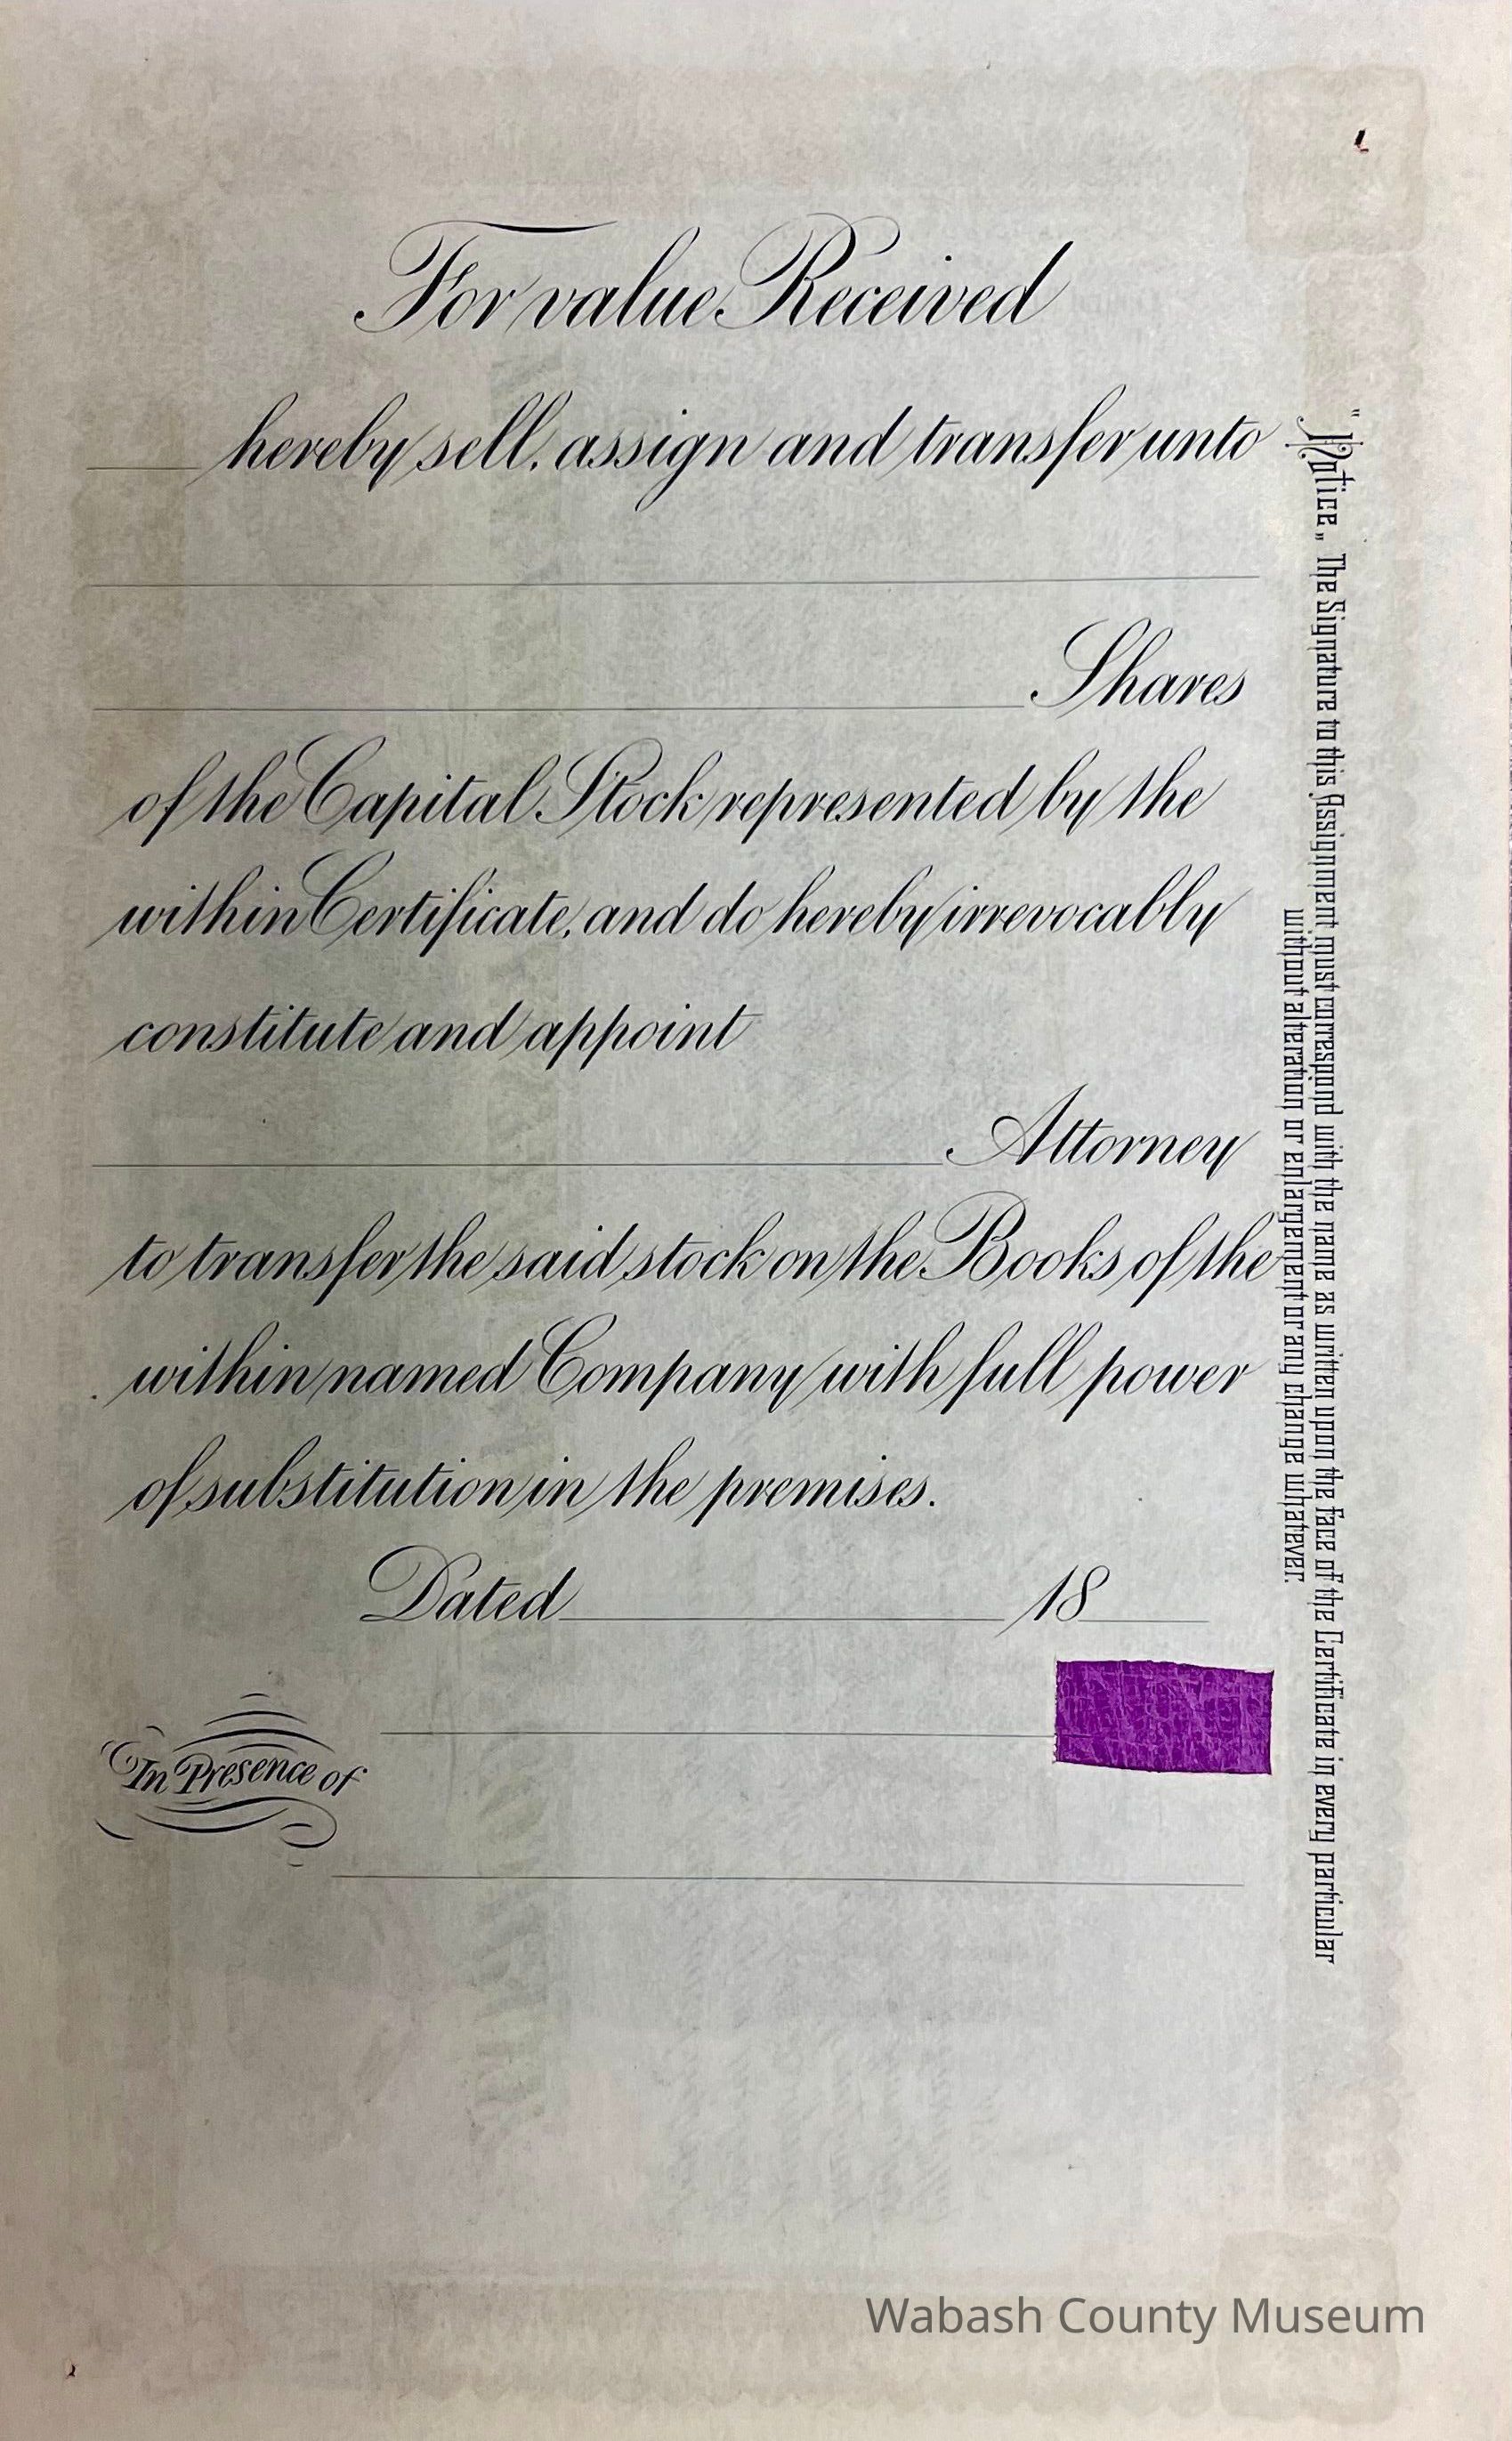 For value Received
____ hereby sell, assign and transfer unto
Shares
of the Capital Stock represented by the
within Certificate, and do hereby irrevocably
constitute and appoint
Attorney
to transfer the said stock on the Books of the
within named Company with full power
of substitution in the premises.
Dated____________ 18____
In Presence of
"Notice„ The Signature to this Assignment must correspond with the name as written upon the face of the Certificate in every particular
without alteration or enlargement or any change whatever.
Wabash County Museum